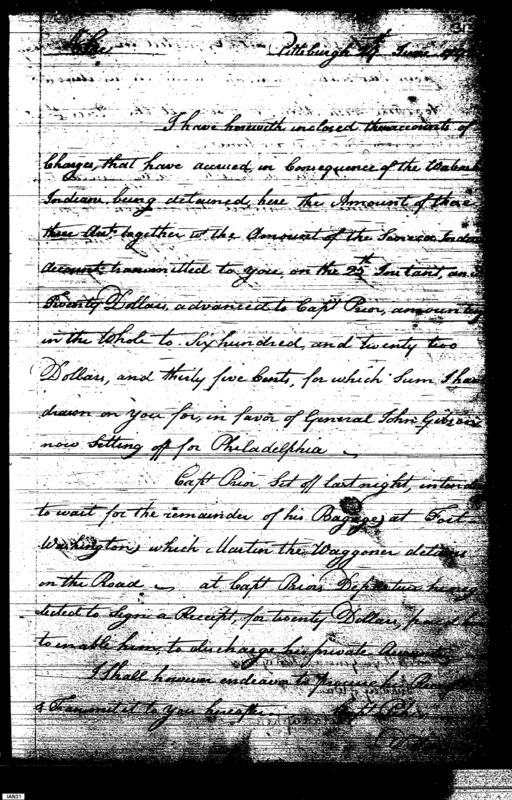 Pittsburgh June
I have herewith inclosed three accounts of
Charges, that have accrued, in Consequence of the Wabash
Indians being detained here the Amount of these
three Acts. together wt the Amount of the Seneca Indian
Account transmitted to you, on the 25th Instant, and
Twenty Dollars, advanced to Capt Prior, amounting
in the Whole to Six hundred, and twenty two
Dollars, and thirty five Cents, for which Sum I have
drawn on you for, in favor of General John Gibson
now Setting off for Philadelphia
Capt Prior Set off last night, intends
to wait for the remainder of his Bagage, at Fort
Washington, which Martin the Waggoner detains
on the Road at Capt Priors Departure he neg
lected to Sign a Receipt, for twenty Dollars, paid him
to enable him, to discharge his private Accounts
I Shall however endeavor to procure his Receipt
& Transmit it to you hereafter Capt
IAN31